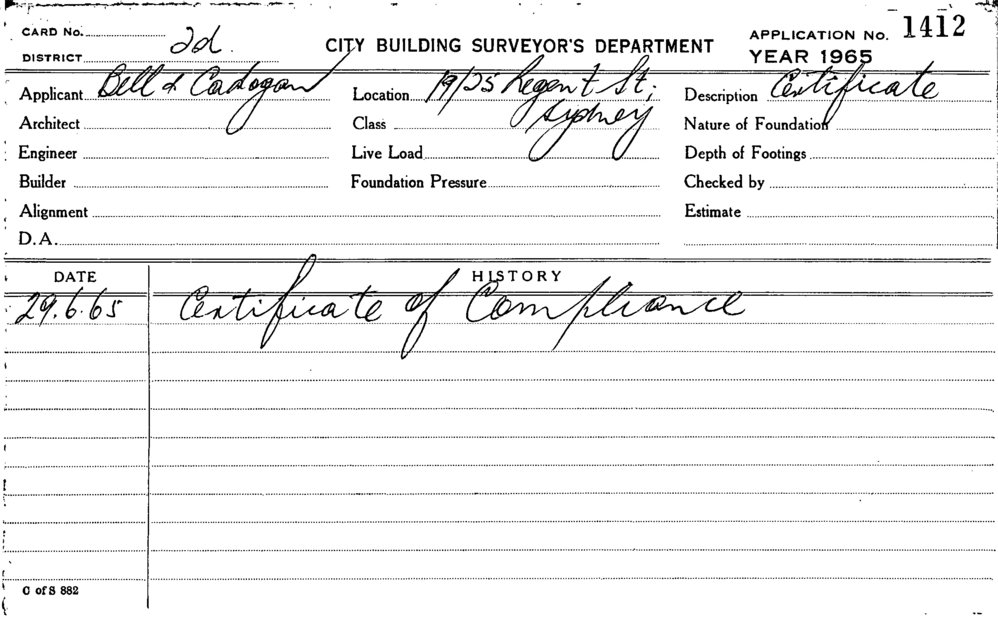 CARD No. 2d. CITY BUILDING SURVEYOR'S DEPARTMENT APPLICATION No. 1412
DISTRICT YEAR 1965
Applicant Bell & Cadogan Location 19/25 Regent St; Description Certificate
Architect Class Sydney Nature of Foundation
Engineer Live Load Depth of Footings
Builder Foundation Pressure Checked by
Alignment Estimate
D.A.
DATE HISTORY
29.6.65 Certificate of Compliance
C of S 882